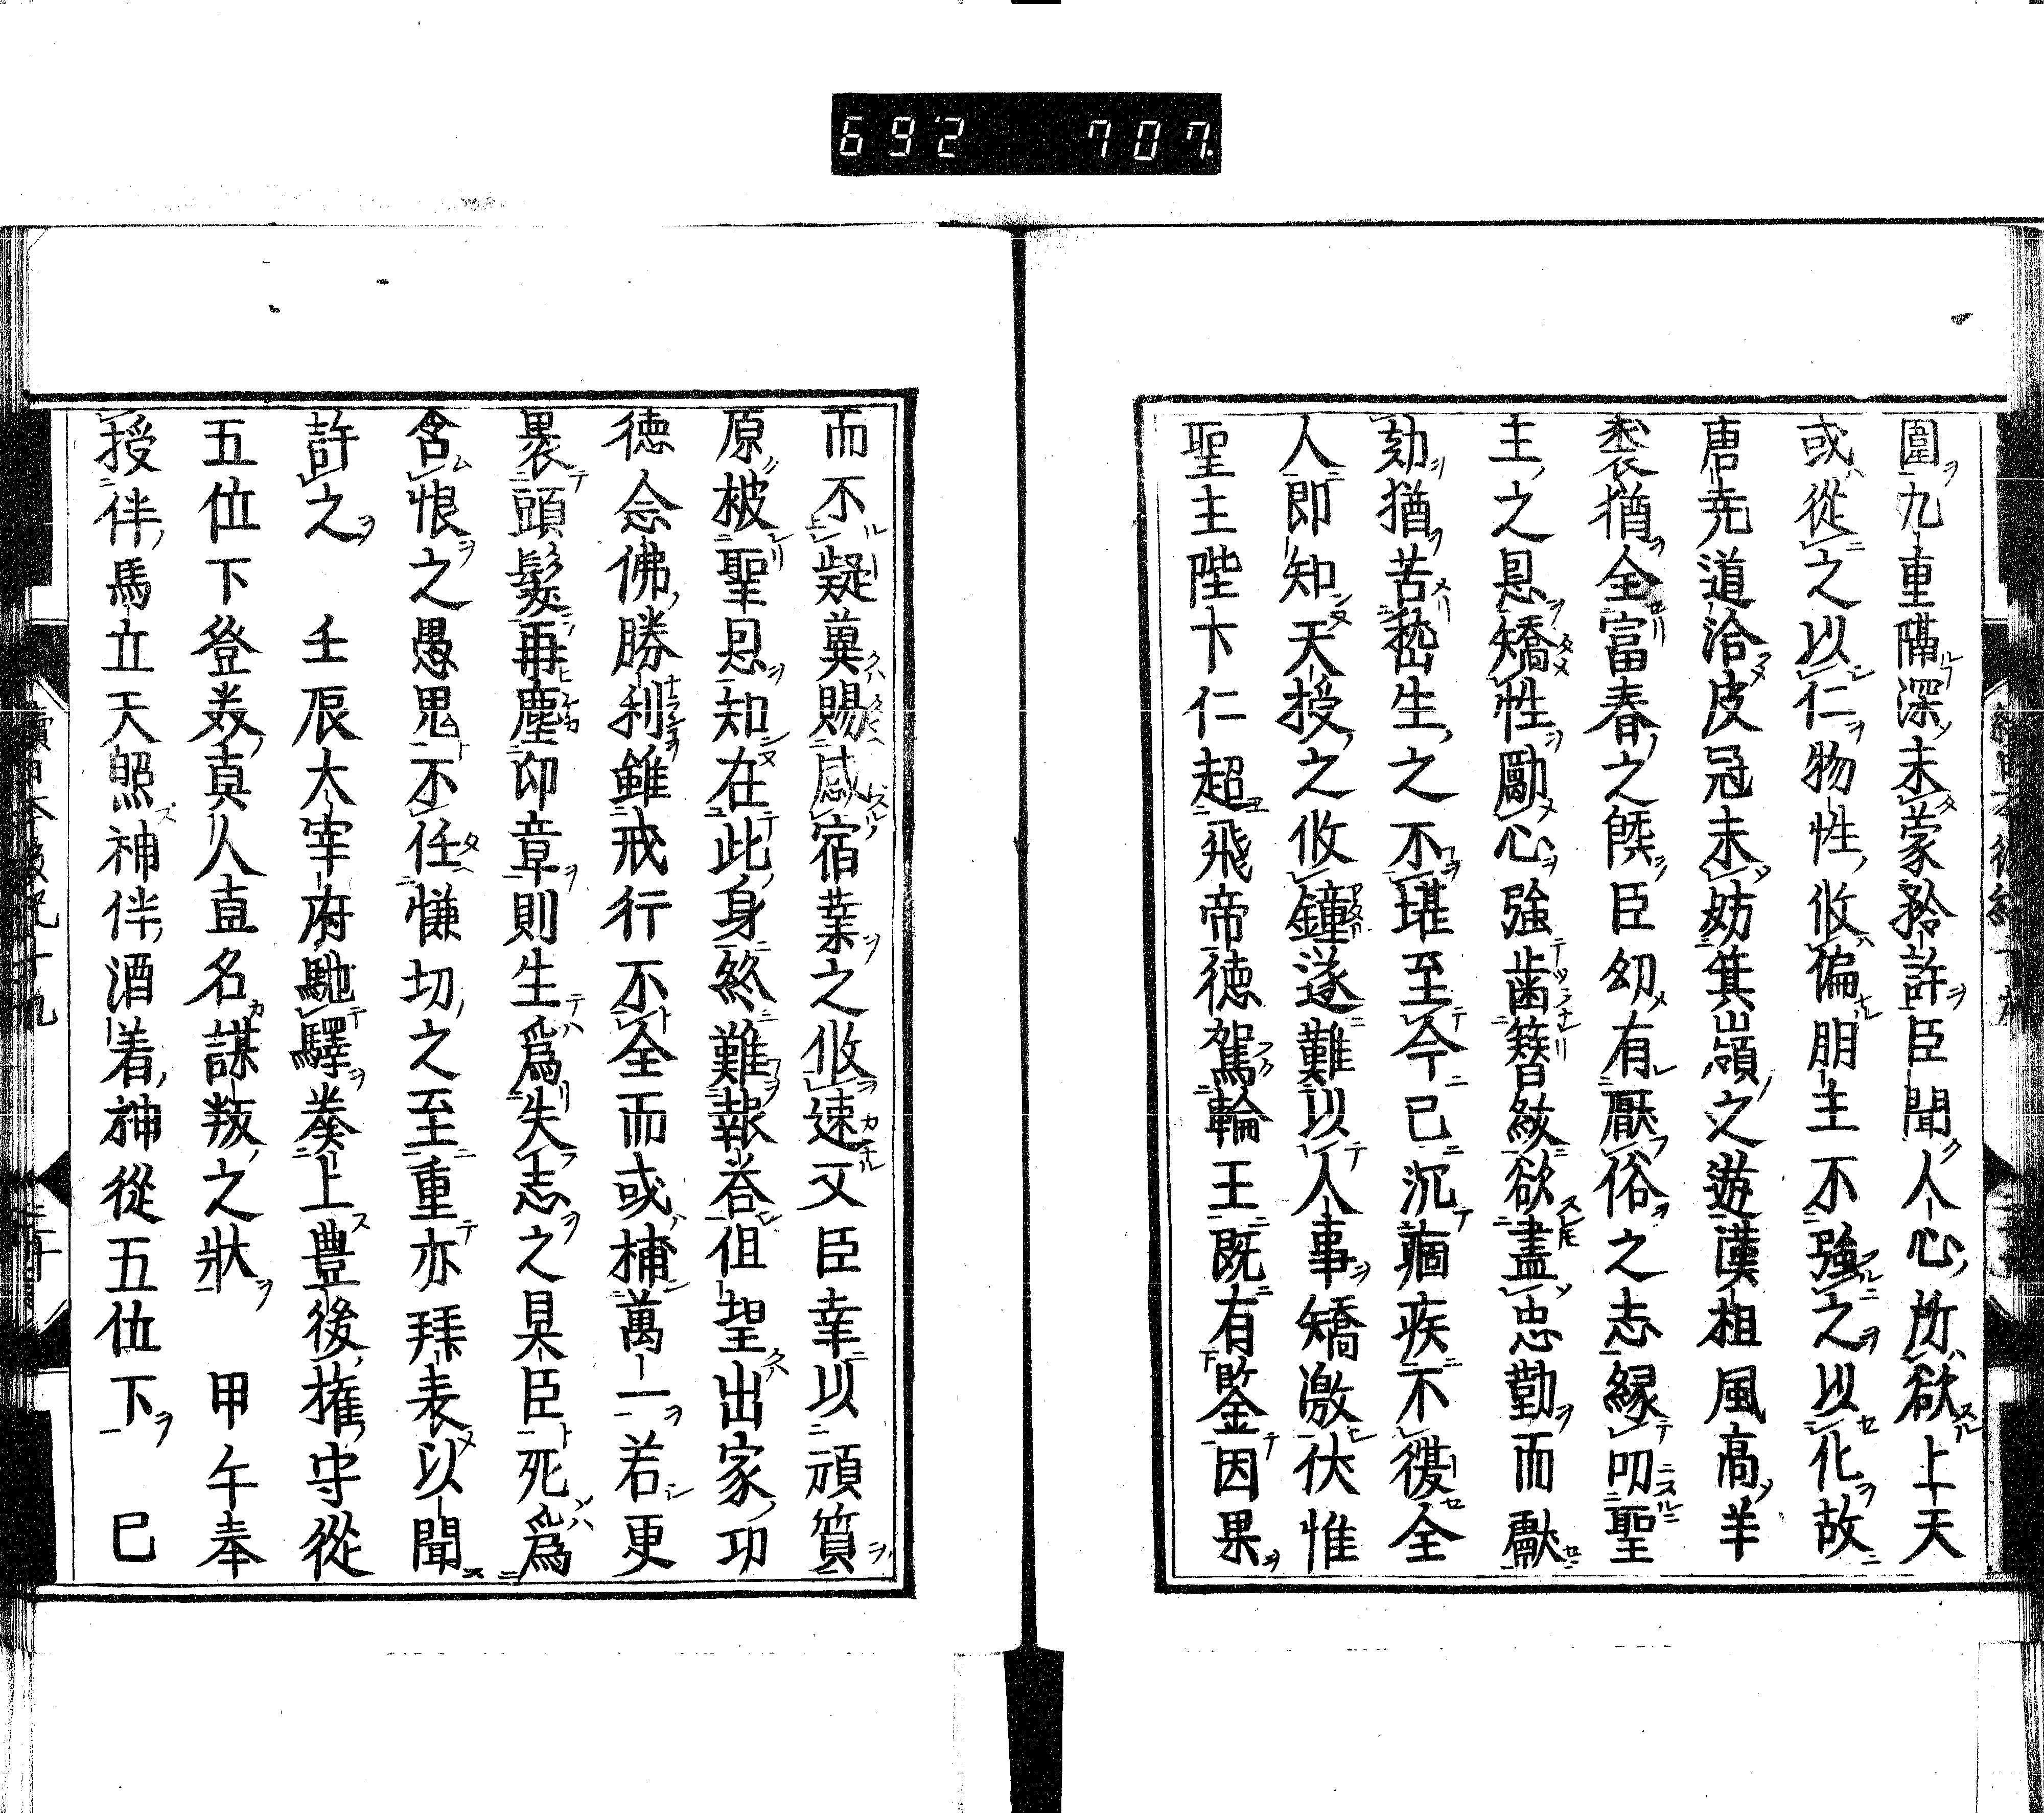 692 707.
圍九重隔深未蒙矜許臣聞人心所欲上天
或從之以仁物性攸偏明主不強之以化故
唐尭道洽皮冠未妨箕嶺之遊漢祖風高羊
裘猶全富春之餝臣幼有厭俗之志縁叩聖
主之恩矯性勵心強歯簪紱欲盡忠勤而獻
効猶苦嵆生之不堪至今已沉痼疾不復全
人即知天授之攸鐘遂難以人事矯激伏惟
聖主陛下仁超飛帝徳駕輪王既有鑒因果
而不疑冀賜感宿業之攸速又臣幸以頑質
原被聖恩知在此身終難報荅但望出家功
徳念佛勝利雖戒行不全而或捕萬一若更
褁頭髮再塵印章則生爲失志之具臣死爲
含恨之愚鬼不任慊切之至重亦拜表以聞
許之　壬辰大宰府馳驛奏上豊後權守從
五位下登美真人直名謀叛之狀　甲午奉
授伴馬立天照神伴酒着神從五位下　已
續日本後紀十九